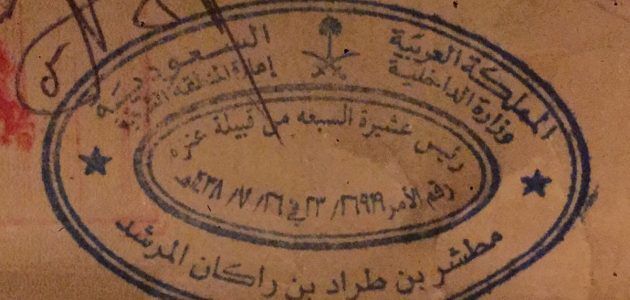 المملكة العربية السعودية
وزارة الداخلية
إمارة المنطقة
رئيس عشيرة السبعه من قبيلة عنزه
رقم الأمر ٢٣/٢٦٩١٩ في ٢٦/٧/١٤٣٨هـ
مطشر بن طراد بن راكان المرشد